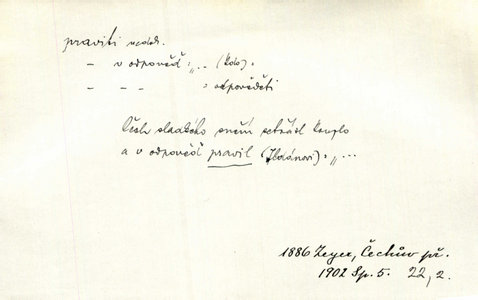 praviti nedok.
– v odpověď: „.. (kdo).
– – – : odpověděti
Čech sladkého snění setřásl kouzlo
a v odpověď pravil (Ildánovi): „...
1886 Zeyer, Čechův př.
1902 Sp. 5. 22, 2.